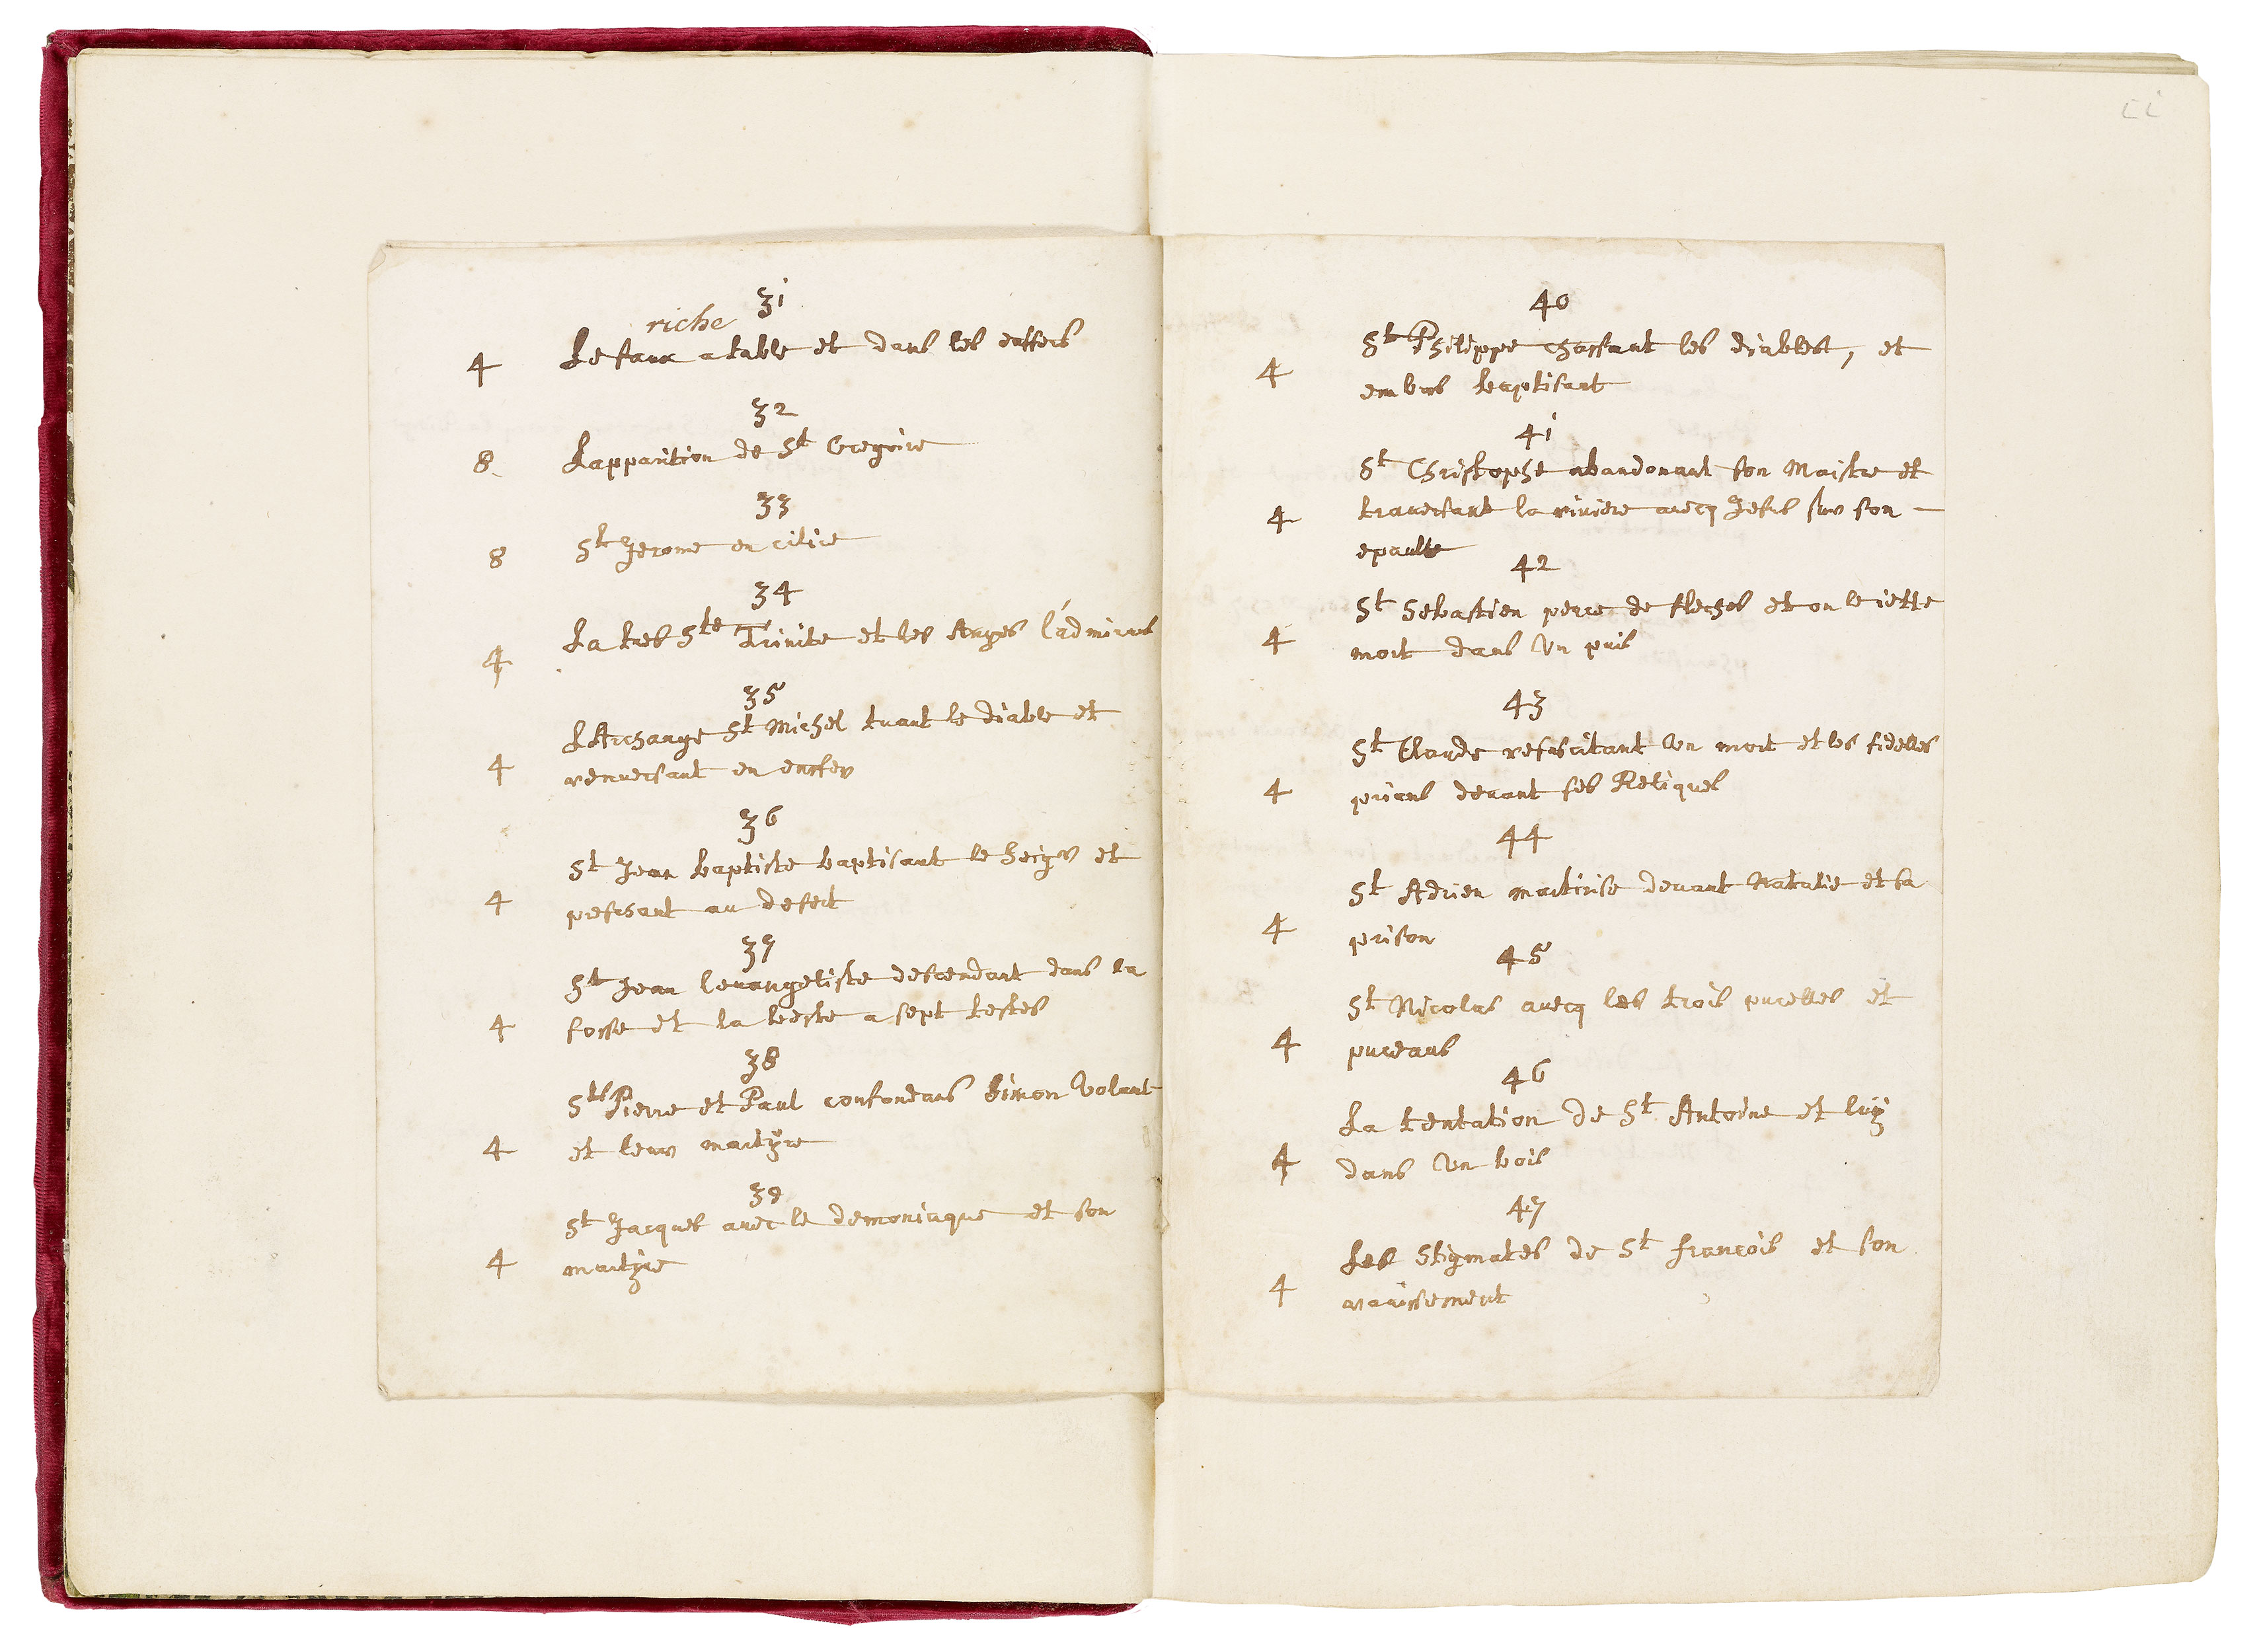 31
riche
4 Le faux a table et dans les enffers
32
8 Lapparition de St Gregoire
33
8 St Jerome en cilice
34
4 La tres Ste Trinite et les Anges l'admirans
35
LArchange St Michel tuant le diable et
4 renversant en enffer
36
St Jean baptiste baptisant le Seigr et
4 preschant au desert
37
St Jean levangeliste descendant dans la
4 fosse et la beste a sept testes
38
Sts Pierre et Paul confondans Simon volant
4 et leur martÿre
39
St Jacques avec le demoniaque et son
4 martÿre
40
St Philippe chassant les diables, et
4 em bas baptisant
41
St Christophe abandonant son Maistre et
4 traversant la riviere avecq Jesus sur son —
epaulle
42
St Sebastien perce de fleches et on le iette
4 mort dans un puis
43
St Claude resuscitant un mort et les fidelles
4 prians devant ses Reliques
44
St Adrien martirise devant Natalie et sa
4 prison
45
St Nicolas avecq les trois pucelles et
4 puceaus
46
La tentation de St Antoine et luÿ
4 dans un bois
47
Les Stigmates de St francois et son
4 ravissement